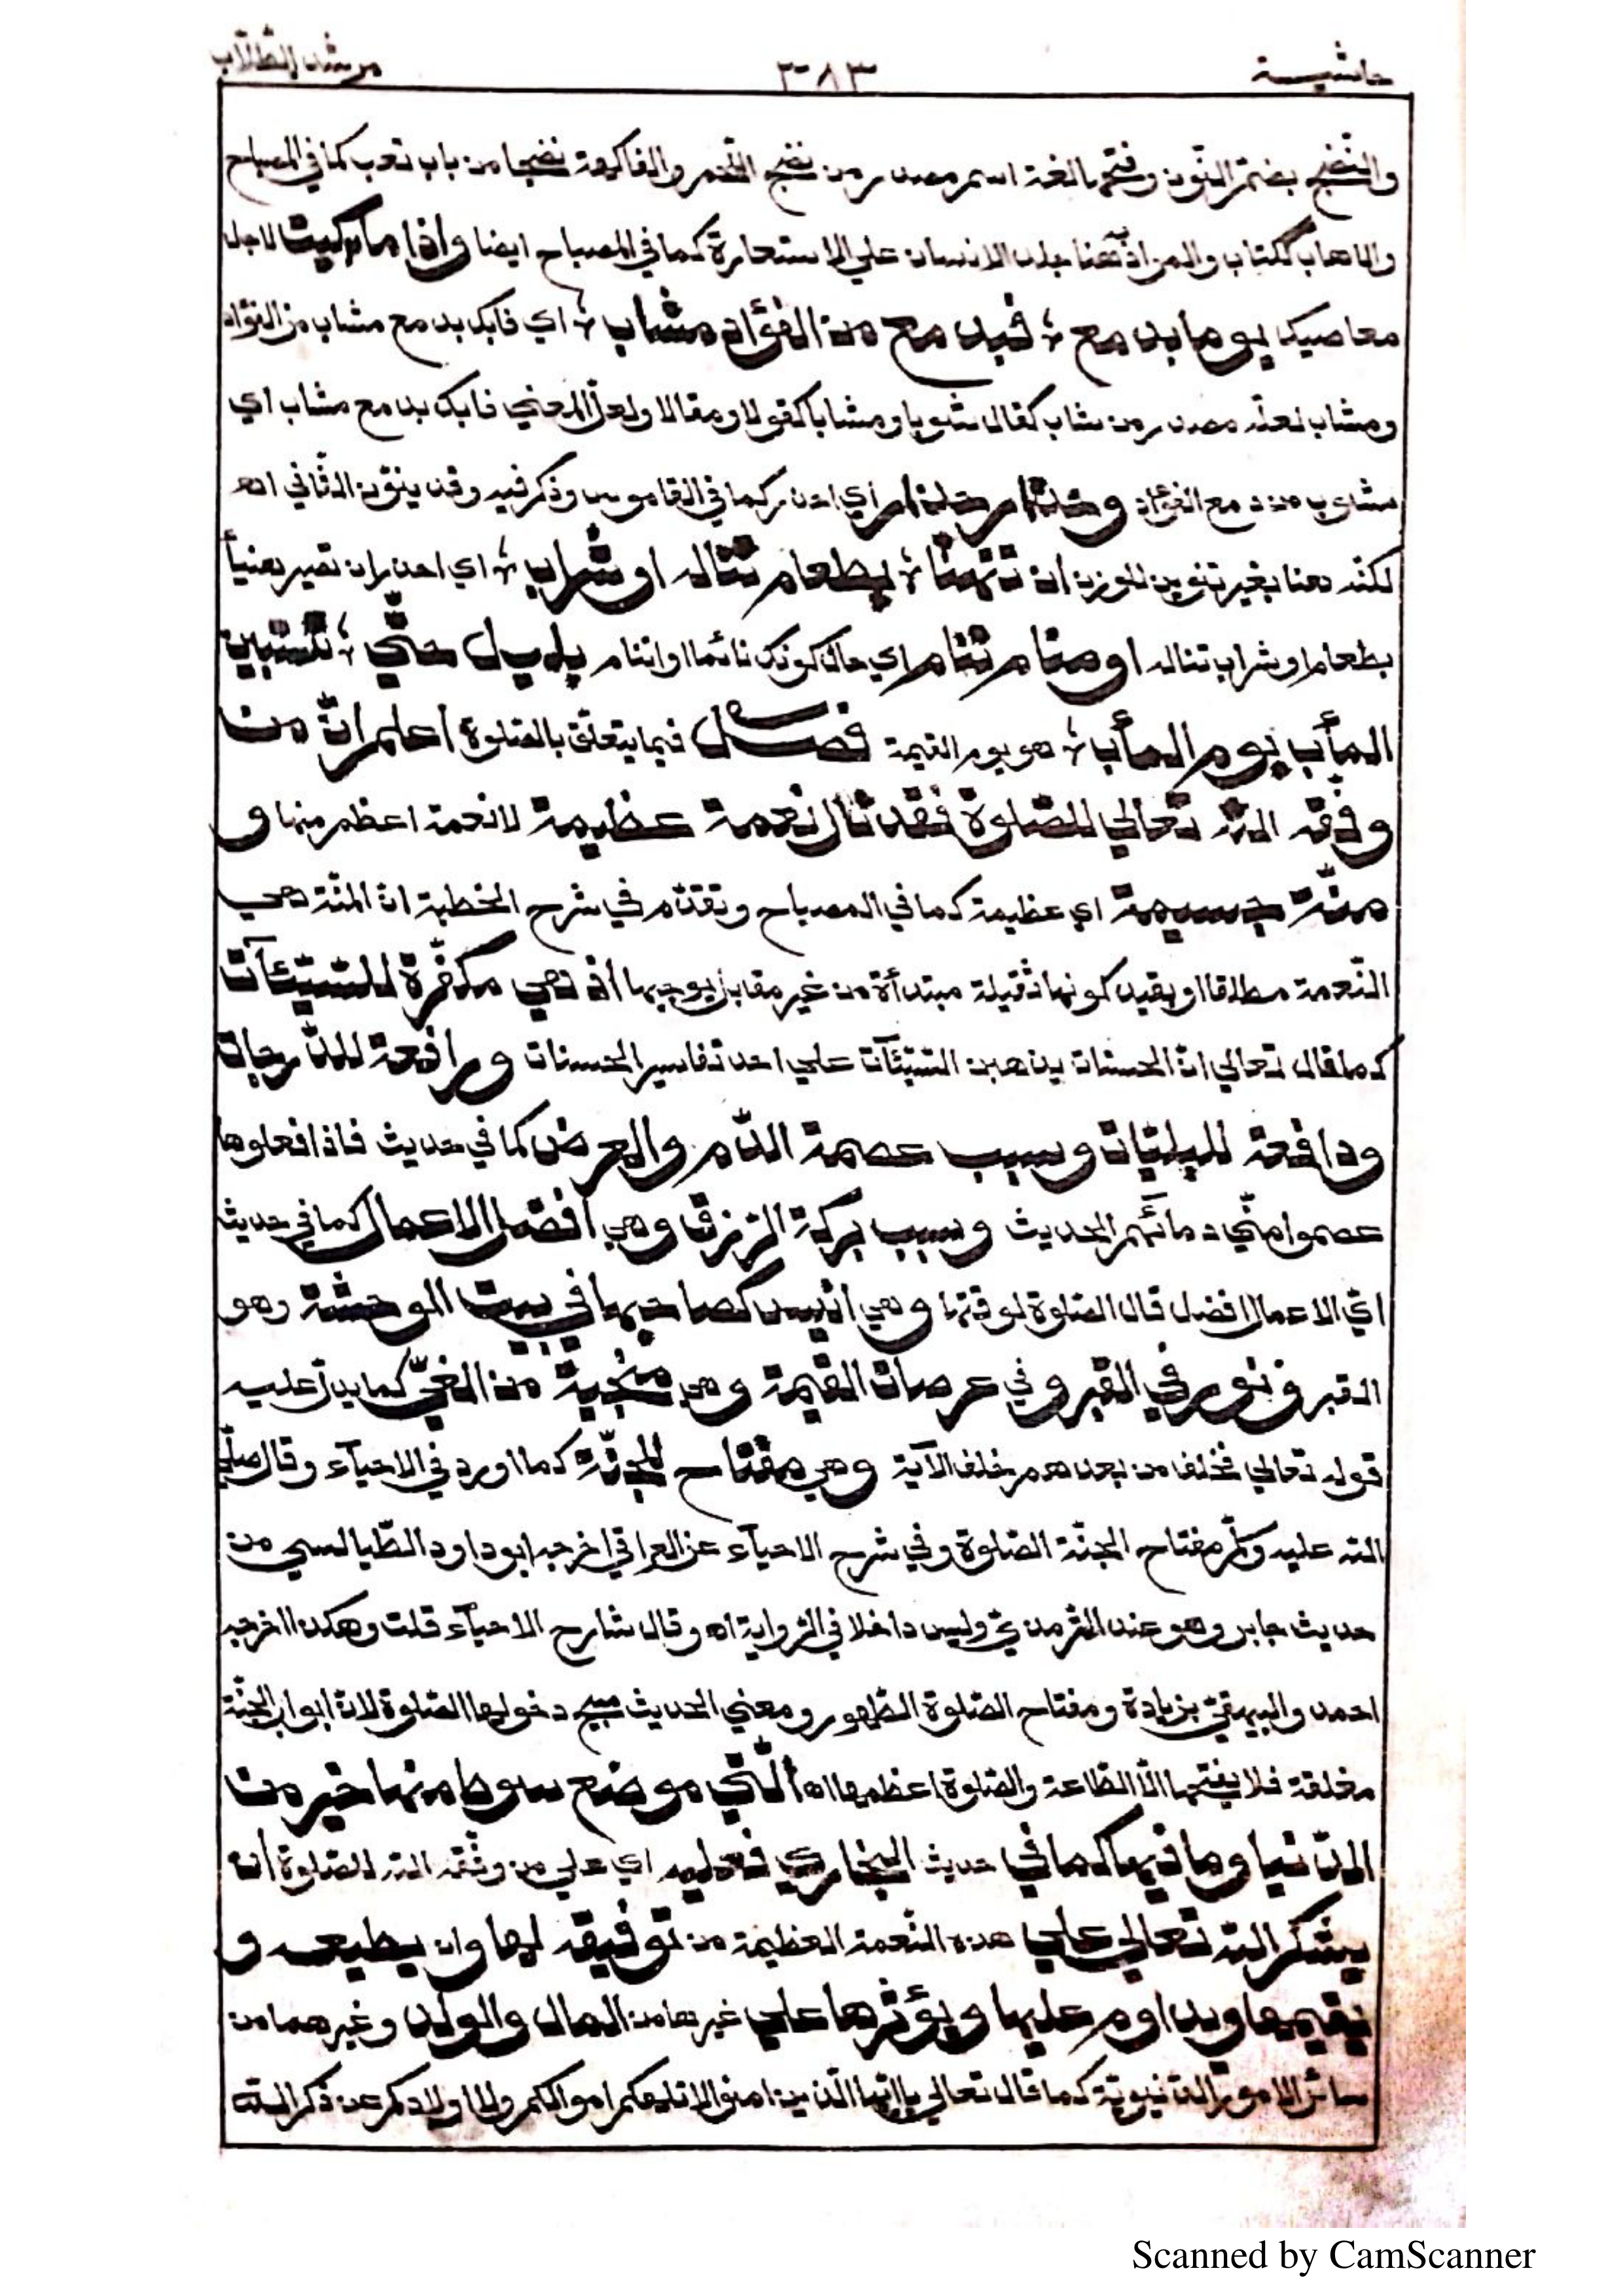 حاشيـــة ٣٨٣ مرشد الطّلّاب
والنّضج بضمّ النّون وفتحها لغة اسم مصدر من نضج التّمر والفاكهة نضجا من باب تعب كما في المصباح
والاهاب ككتاب والمراد هنا جلد الانسان علي الاستعارة كما في المصباح ايضا واذا ما بكيت لاجل
معاصيك يوما بدمع ؛ فبدمع من الفؤاد مشاب ؛ اي فابك بدمع مشاب من الفؤاد
ومشاب لعلّه مصدر من شاب كقال شوبا ومشابا كقولا ومقالا ولعلّ المعني فابك بدمع مشاب اي
مشوب مع الفؤاد وحذار حذار اي احذر كما في القاموس وذكر فيه وقد ينوّن الثّاني اه
لكنّه هنا بغير تنوين للوزن ان تهنّأ ؛ بطعام تناله او شراب ؛ اي احذر ان تصير هنيأ
بطعام او شراب تناله او منام تنام اي حال كونك نائما او اننام بل بل حتّي ؛ تستبين
المأب يوم المأب ؛ هو يوم القيمة فصــل فيما يتعلّق بالصّلوة اعلم انّ من
وفّقه اللّه تعالي للصّلوة فقد نال نعمة عظيمة لا نعمة اعظم منها و
منّة جسيمة اي عظيمة كما في المصباح وتقدّم في شرح الخطبة انّ المنّة هي
النّعمة مطلقا او بقيد كونها ثقيلة مبتدأة من غير مقابل يوجبها اذ هي مكفّرة للسّيّئآت
كما قال تعالي انّ الحسنات يذهبن السّيّئآت علي احد تفاسير الحسنات ورافعة للدّرجات
ودافعة للبليّات وسبب عصمة الدّم والعرض كما في حديث فاذا فعلوها
عصموا منّي دمائهم الحديث وسبب بركة الرّزق وهي افضل الاعمال كما في حديث
ايّ الاعمال افضل قال الصّلوة لوقتها وهي انيس لصاحبها في بيت الوحشة وهو
القبر ونور في القبر وفي عرصات القيمة وهي منجية من الغيّ كما يدلّ عليه
قوله تعالي فخلف من بعدهم خلف الآية وهي مفتاح الجنّة كما اورد في الاحيآء وقال صلّي
اللّه عليه وسلّم مفتاح الجنّة الصّلوة وفي شرح الاحيآء عن العراقي اخرجه ابو داود الطّيالسي من
حديث جابر وهو عند التّرمذيّ وليس داخلا في الرّواية اه وقال شارح الاحيآء قلت وهكذا اخرجه
احمد والبيهقيّ بزيادة ومفتاح الصّلوة الطّهور ومعني الحديث مبيح دخولها الصّلوة لانّ ابواب الجنّة
مغلقة فلا يفتحها الّا الطّاعة والصّلوة اعظمها اه الّتي موضع سوط منها خير من
الدّنيا وما فيها كما في حديث البخاري فعليه اي علي من وفّقه اللّه للصّلوة ان
يشكر اللّه تعالي علي هذه النّعمة العظيمة من توفيقه لها وان يطيعه و
يقيمها ويداوم عليها ويؤثرها علي غيرها من المال والولد وغيرهما من
سائر الامور الدّنيويّة كما قال تعالي ياايّها الّذين امنوا لا تلهكم اموالكم ولا اولادكم عن ذكر اللّه
Scanned by CamScanner